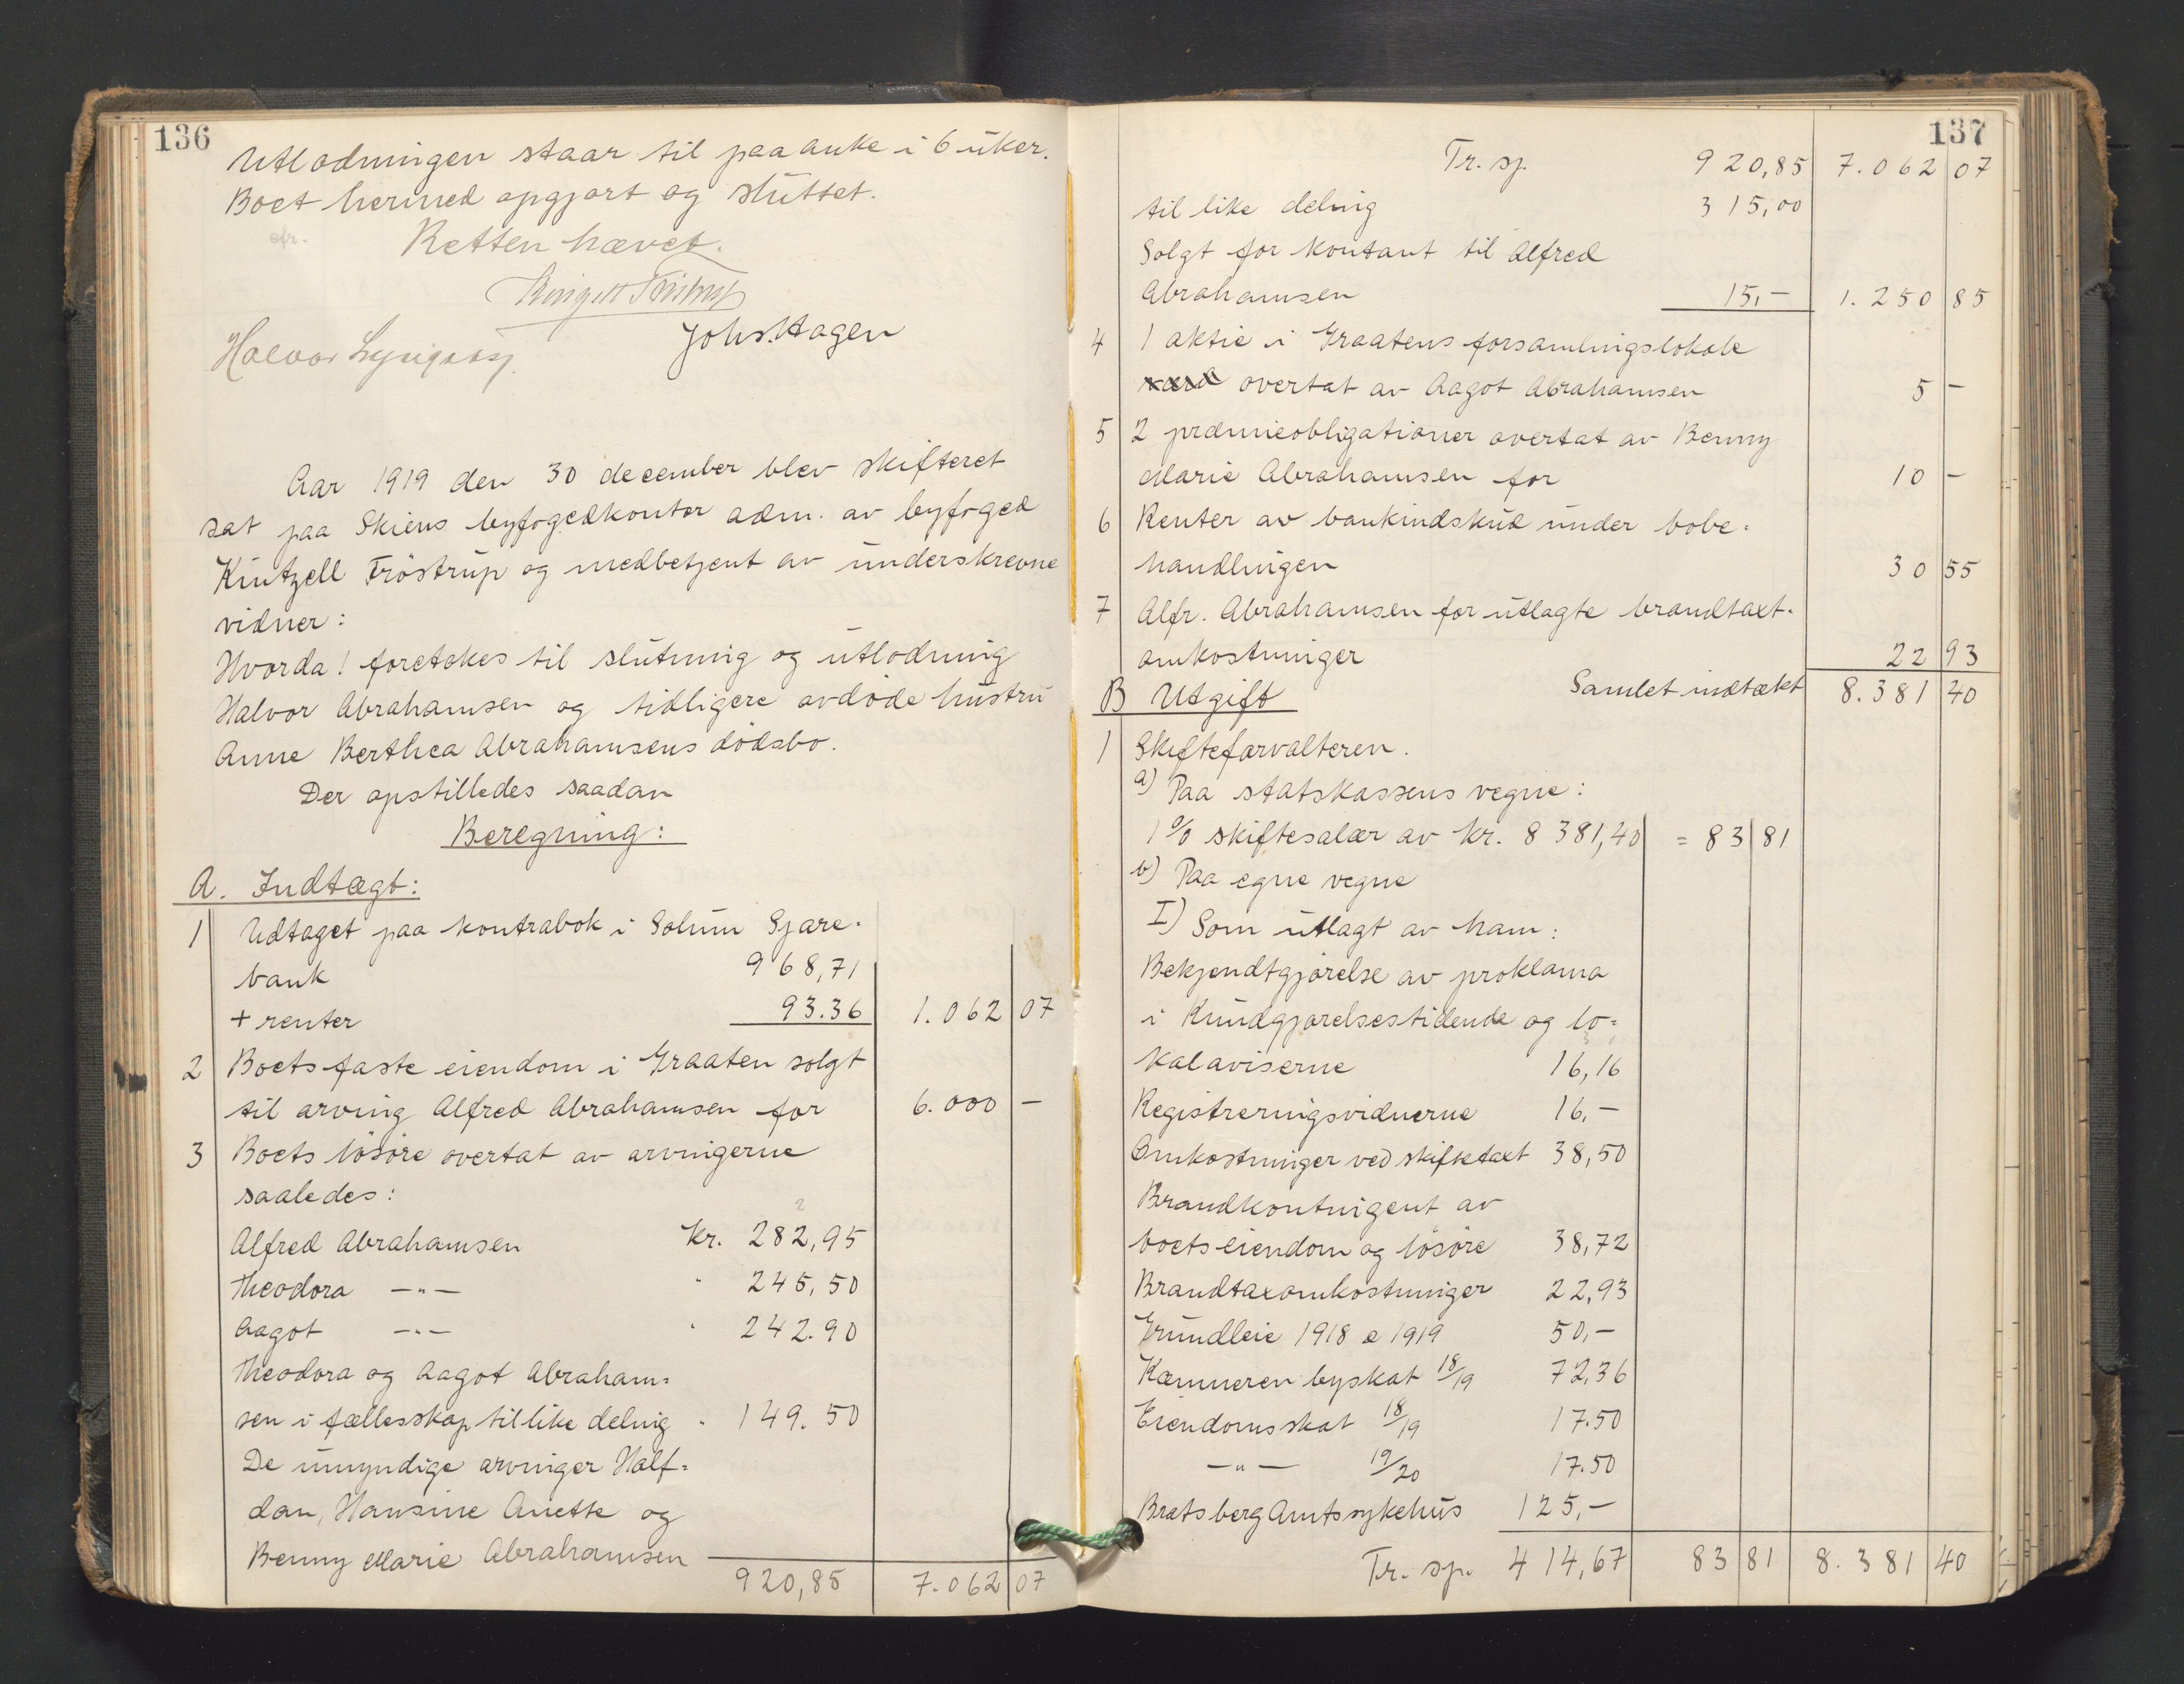 136
Utlodningen staar til paaanke i 6 uker.
Boet hermed opgjort og sluttet.
Retten hævet.
Johs. Hagen
Halvor
Aar 1919 den 30 december blev skifteret
sat paa Skiens byfogedkontor adm. av byfoged
Kintzell Fröstrup og medbetjent av underskrevne
vidner:
Hvorda! foretokes til slutning og utlodning
Halvor Abrahamsen og tidligere avdöde hustru
Anne Berthea Abrahamsens dödsbo.
Der opstilledes saadan
Beregning:
A. Indtægt:
1 Udtaget paa kontrabok i Solum Spare-
bank 968,71
+ renter 93.36 1.062 07
2 Boets faste eiendom i Graaten solgt
til arving Alfred Abrahamsen for 6.000 —
3 Boets lösöre overtat av arvingerne
saaledes:
Alfred Abrahamsen kr. 282,95
Theodora —"— " 245,50
Aagot —"— " 242.90
Theodora og Aagot Abraham=
sen i fællesskap til like deling " 149.50
De umyndige arvinger Half=
dan, Hansine Anette og
Benny Marie Abrahamsen
920,85 7.062 07
137
Tr. sp. 920,85 7.062 07
til like deling 315,00
Solgt for kontant til Alfred
Abrahamsen 15,— 1.250 85
4 1 aktie i Graatens forsamlingslokale
overtat av Aagot Abrahamsen 5 —
5 2 præmieobligationer overtat av Benny
Marie Abrahamsen for 10 —
6 Renter av bankindskud under bobe-
handlingen 30 55
7 Alfr. Abrahamsen for utlagte brandtaxt-
omkostninger 22 93
B Utgift Samlet indtækt 8.381 40
1 Skifteforvalteren.
a) Paa statskassens vegne:
1 % skiftesalær av kr. 8 381,40 = 83 81
b) Paa egne vegne
I) Som utlagt av ham:
Bekjendtgjörelse av proklama
i Kundgjörelsestidende og lo=
kalaviserne 16,16
Registreringsvidnerne 16,—
Omkostninger ved skiftetaxt 38,50
Brandkontingent av
boets eiendom og lösöre 38,72
Brandtaxomkostninger 22,93
Grundleie 1918 & 1919 50,—
Kæmneren byskat 18/19 72,36
Eiendomsskat 18/19 17.50
—"— 19/20 17.50
Bratsberg Amtssykehus 125,—
Tr. sp. 414,67 83 81 8.381 40